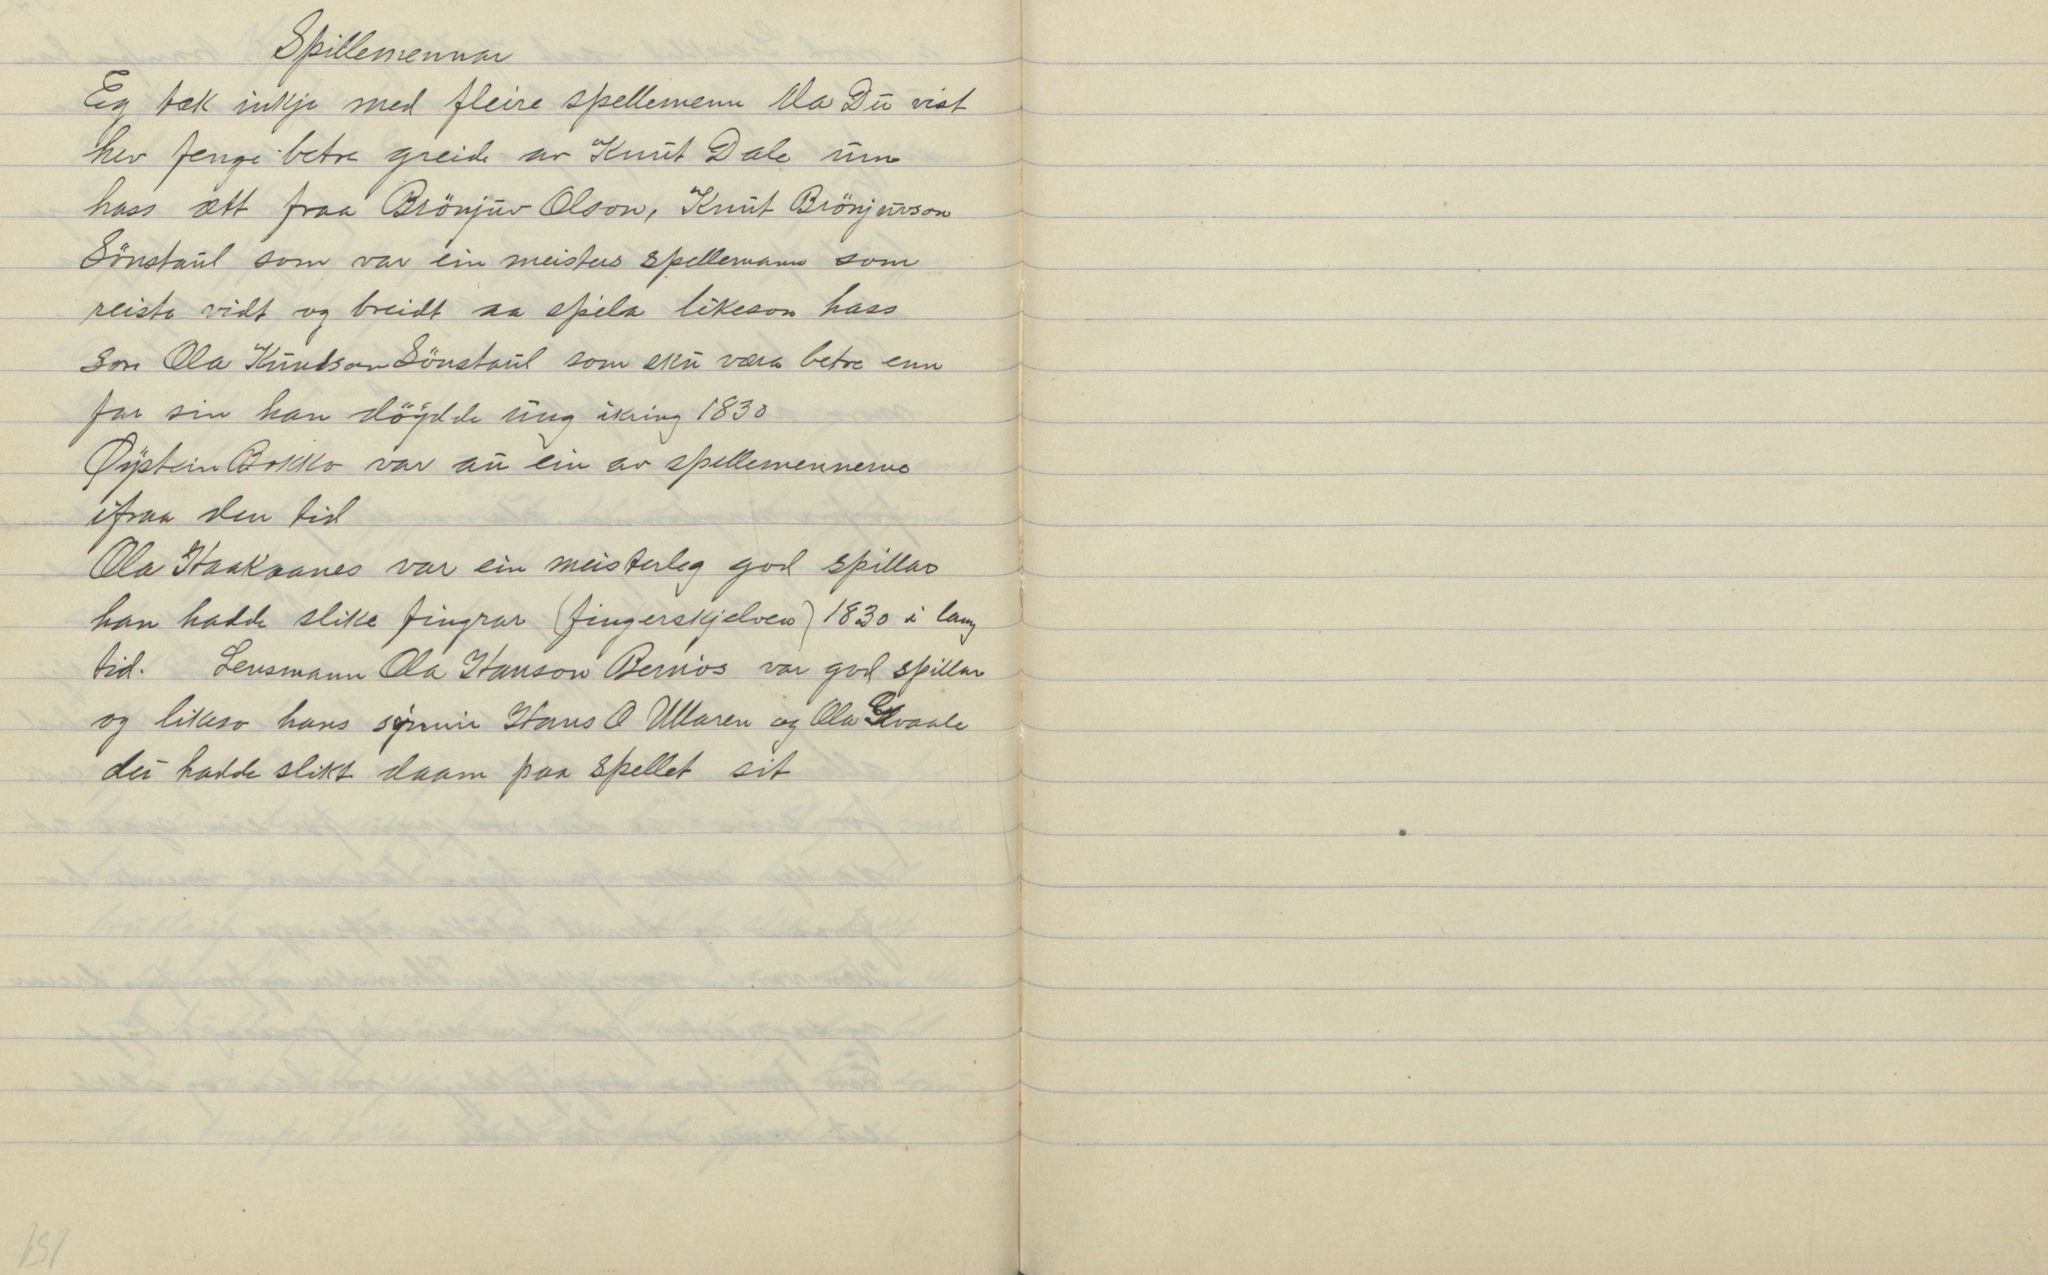 Spillemennar
Eg tæk inkje med fleire spellemenn Ola Du vist
hev fenge betre greide av Knut Dale um
hass ætt fraa Brönjuv Olson, Knut Brönjuvson
Sönstaul som var ein meisters spellemann som
reiste vidt og breidt aa spela likeson hass
son Ola Knudson Sönstaul som sku væra betre enn
far sin han döydde ung ikring 1830
Öystein Bokko var au ein av spellemennerne
ifraa den tid
Ola Haakaanes var ein meisterleg god spillar
han hadde slike fingrar (fingerskjelven) 1830 i lang
tid. Lensmann Ola Hanson Bernos var god spillar
og likeso hans synnir Hans O Ullaren og Ola Gvaale
dei hadde slikt daam paa spellet sit
151